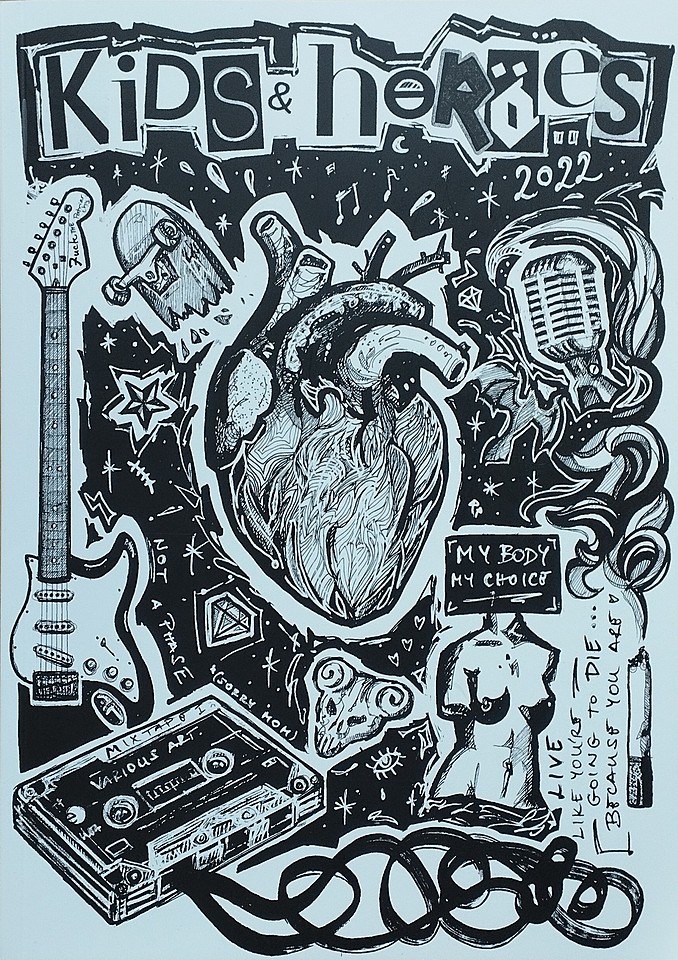 KiDS & heRöes
2022
Fuck the
MY BODY
MY CHOICE
NOT A PHASE
(SORRY MOM)
MIXTAPE 1.
VARIOUS ART.
LIVE
LIKE YOU'RE
GOING TO DIE...
BECAUSE YOU ARE